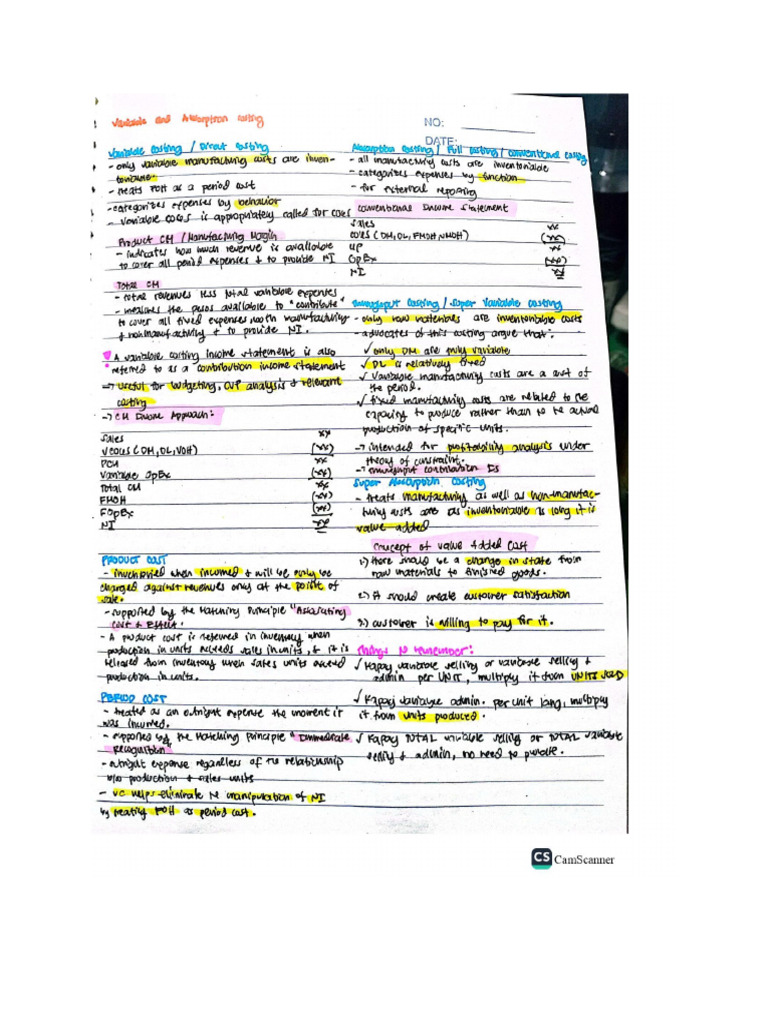 Variable and Absorption Costing
NO:
DATE:
Variable Costing / Direct Costing
- only variable manufacturing costs are inven-
toriable.
- treats FOH as a period cost
- categorizes expenses by behavior
- variable COGS is appropriately called for COGS
Product CM / Manufacturing Margin
- indicates how much revenue is available
to cover all period expenses & to provide NI
Total CM
- total revenues less total variable expenses
- measures the pesos available to "contribute"
to cover all fixed expenses both manufacturing
& nonmanufacturing & to provide NI.
A variable costing income statement is also
referred to as a contribution income statement
→ useful for budgeting, CVP analysis & relevant
costing
→ CM Income Approach:
Sales xx
VCOGS (DM, DL, VOH) (xx)
PCM xx
Variable OpEx (xx)
Total CM xx
FMOH (xx)
FOpEx (xx)
NI xx
PRODUCT COST
- inventoried when incurred & will be only be
charged against revenues only at the point of
sale.
- supported by the Matching Principle "Associating
Cost & Effect"
- A product cost is returned in inventory when
production in units exceeds sales in units, & it is
released from inventory when sales units exceed
production in units.
PERIOD COST
- treated as an outright expense the moment it
was incurred.
- supported by the Matching Principle "Immediate
Recognition"
- outright expense regardless of the relationship
b/w production & sales units
- VC helps eliminate manipulation of NI
by treating FOH as period cost.
Absorption Costing / Full Costing / Conventional Costing
- all manufacturing costs are inventoriable
- categorizes expenses by function
- for external reporting
Conventional Income Statement
Sales xx
COGS (DM, DL, FMOH, VMOH) (xx)
GP xx
OpEx (xx)
NI xx
Throughput Costing / Super Variable Costing
- only raw materials are inventoriable costs
- advocates of this costing argue that:
✓ only DM are truly variable
✓ DL is relatively fixed
✓ Variable manufacturing costs are a cost of
the period.
✓ fixed manufacturing costs are related to the
capacity to produce rather than to the actual
production of specific units.
→ intended for profitability analysis under
theory of constraint.
→ throughput contribution IS
Super Absorption Costing
- treats manufacturing as well as non-manufac-
turing costs as inventoriable as long it is
value added
Concept of Value Added Cost
1) there should be a change in state from
raw materials to finished goods.
2) It should create customer satisfaction
3) customer is willing to pay for it.
Things to remember:
✓ Kapag variable selling or variable selling &
admin per UNIT, multiply it from UNITS SOLD
✓ Kapag variable admin. per unit lang, multiply
it from units produced.
✓ Kapag TOTAL variable selling or TOTAL variable
selling & admin, no need to
CS CamScanner